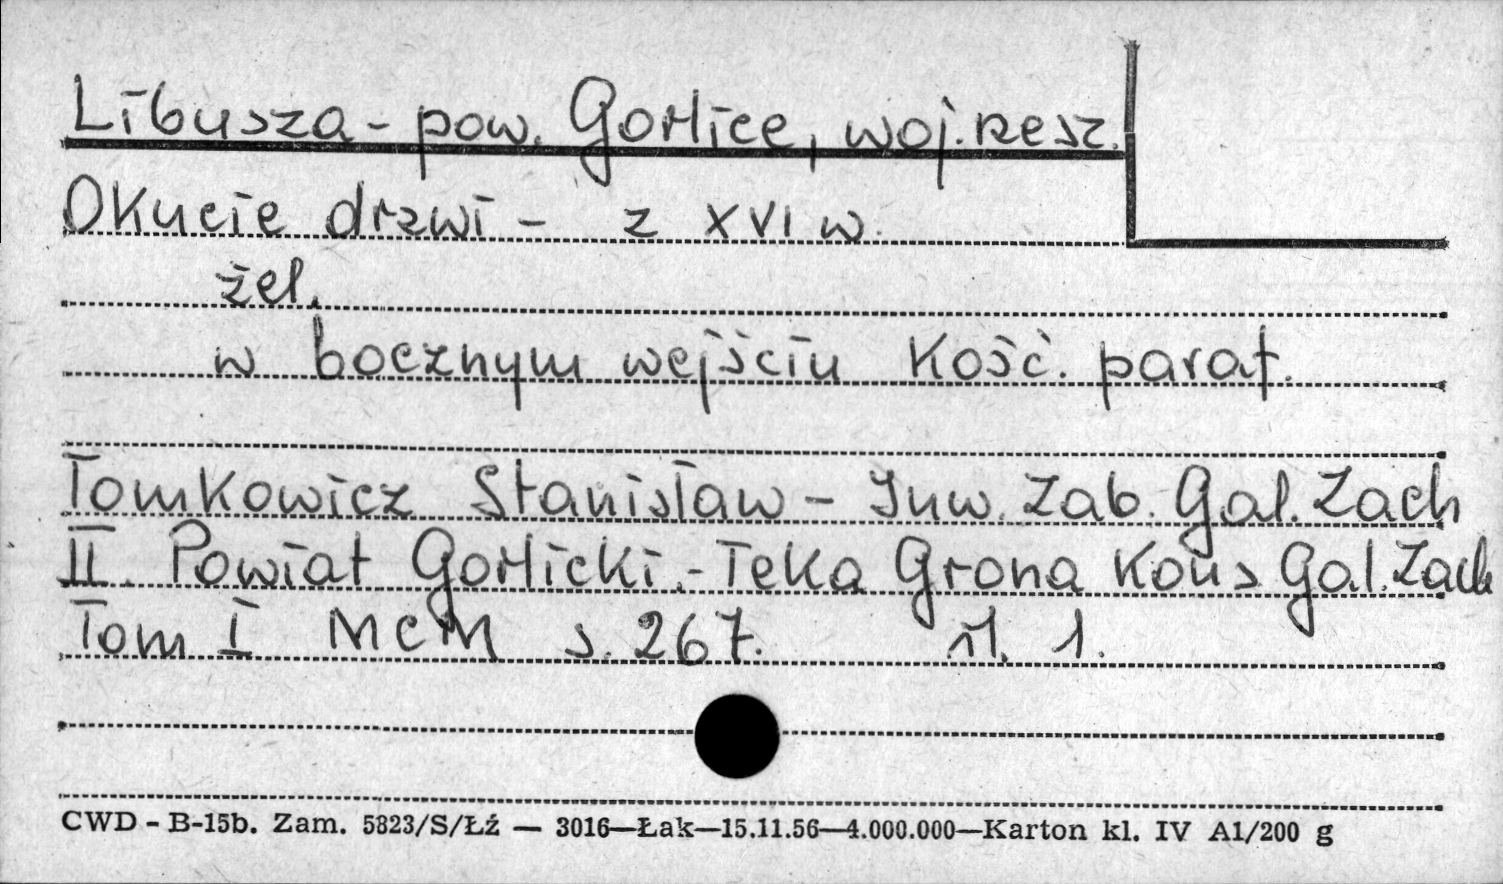 Libusza - pow. Gorlice, woj. rzesz.
Okucie drzwi - z XVI w.
żel.
w bocznym wejściu Kość. paraf.
Tomkowicz Stanisław - Inw. Zab. Gal. Zach
II. Powiat Gorlicki. - Teka Grona Kons Gal. Zach
Tom I MCM s. 267. il. 1.
CWD - B-15b. Zam. 5823/S/Łź — 3016—Łak—15.11.56—4.000.000—Karton kl. IV A1/200 g